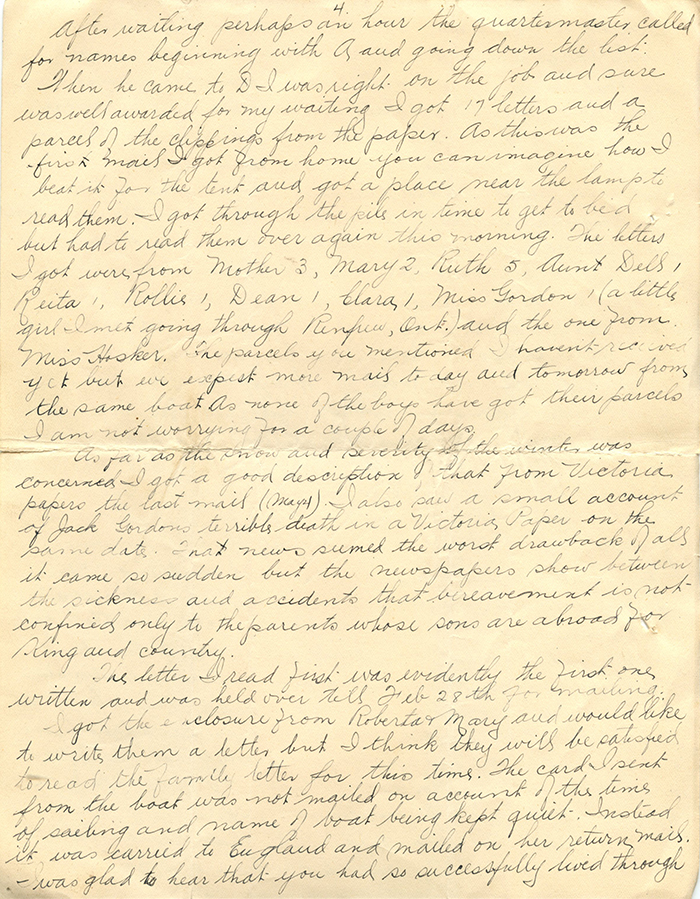 4.
After waiting perhaps an hour the quartermaster called
for names beginning with A and going down the list.
When he came to D I was right on the job and sure
was well awarded for my waiting I got 17 letters and a
parcel of the clippings from the paper. As this was the
first mail I got from home you can imagine how I
beat it for the tent and got a place near the lamp to
read them. I got through the pile in time to get to bed
but had to read them over again this morning. The letters
I got were from Mother 3, Mary 2, Ruth 5, Aunt Dell 1
Reita 1, Rollie 1, Dean 1, Clara 1, Miss Gordon 1 (a little
girl I met going through Renfrew, Ont.) and the one from
Miss Hosker. The parcels you mentioned I havent received
yet but we expect more mail to day and tomorrow from
the same boat As none of the boys have got their parcels
I am not worrying for a couple of days.
As far as the snow and severity of the winter was
concerned I got a good description of that from Victoria
papers the last mail (May 4). I also saw a small account
of Jack Gordons terrible death in a Victoria Paper on the
same date. That news seemed the worst drawback of all
it came so sudden but the newspapers show between
the sickness and accidents that bereavement is not
confined only to the parents whose sons are abroad for
King and country.
The letter I read first was evidently the first one
written and was held over till Feb 28th for mailing.
I got the enclosure from Roberta & Mary and would like
to write them a letter but I think they will be satisfied
to read the family letter for this time. The card I sent
from the boat was not mailed on account of the time
of sailing and name of boat being kept quiet. Instead
it was carried to England and mailed on her return mail.
- I was glad to hear that you had so successfully lived through